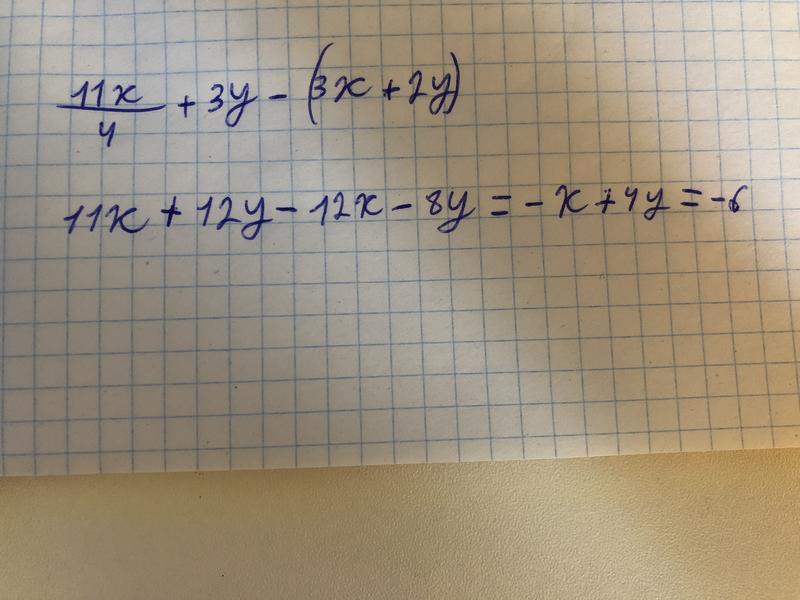 11x/4 + 3y - (3x + 2y)
11x + 12y - 12x - 8y = -x + 4y = -6